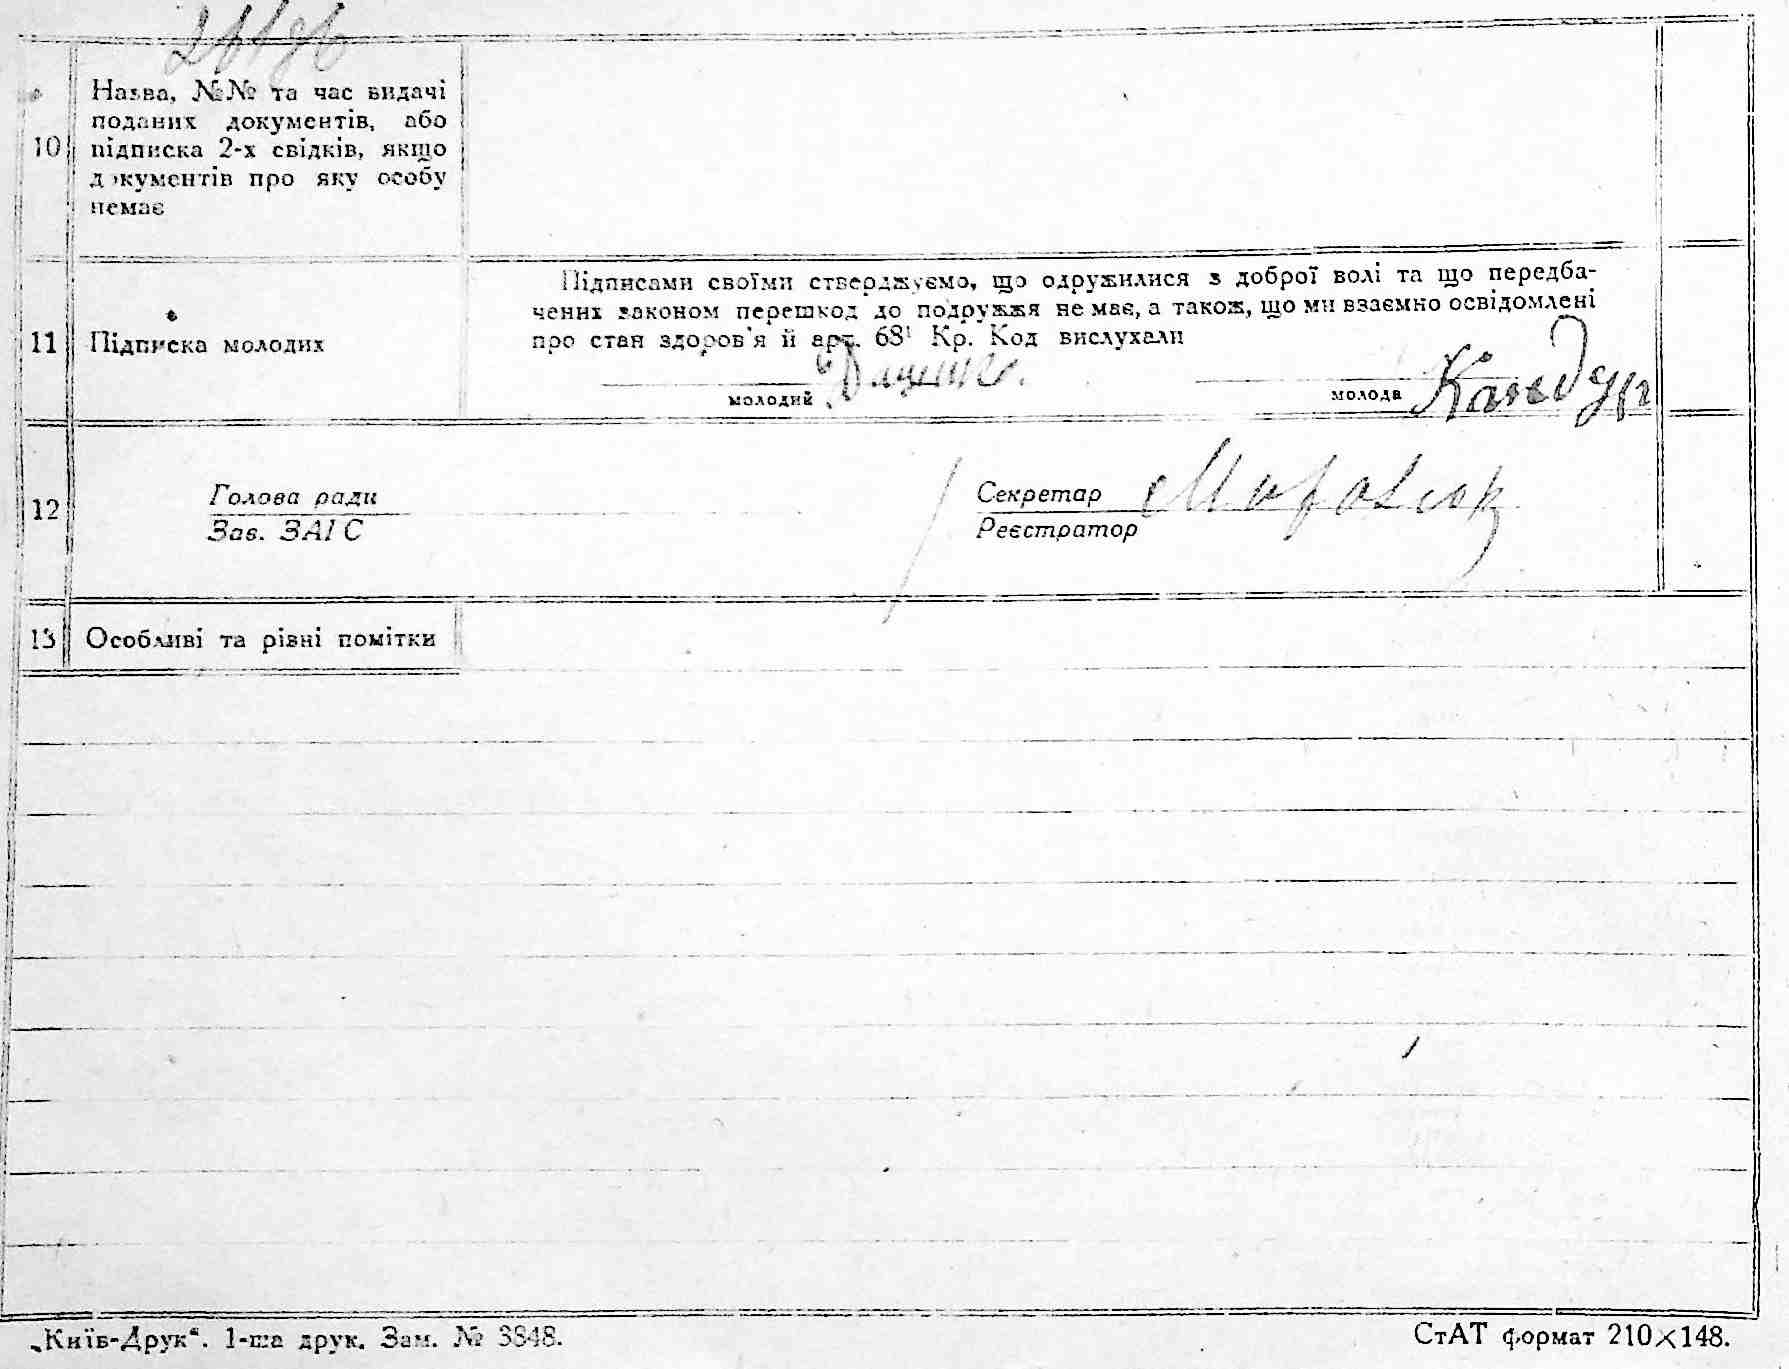 10
Назва, №№ та час видачі
поданих документів, або
підписка 2-х свідків, якщо
документів про яку особу
немає
11
Підписка молодих
Підписами своїми стверджуємо, що одружилися з доброї волі та що передба-
чених законом перешкод до подружжя не має, а також, що ми взаємно освідомлені
про стан здоров'я й арт. 68¹ Кр. Код вислухали
молодий
молода
12
Голова ради
Зав. ЗАГС
Секретар
Реєстратор
13
Особливі та рівні помітки
„Київ-Друк“. 1-ша друк. Зам. № 3848.
СтАТ формат 210×148.